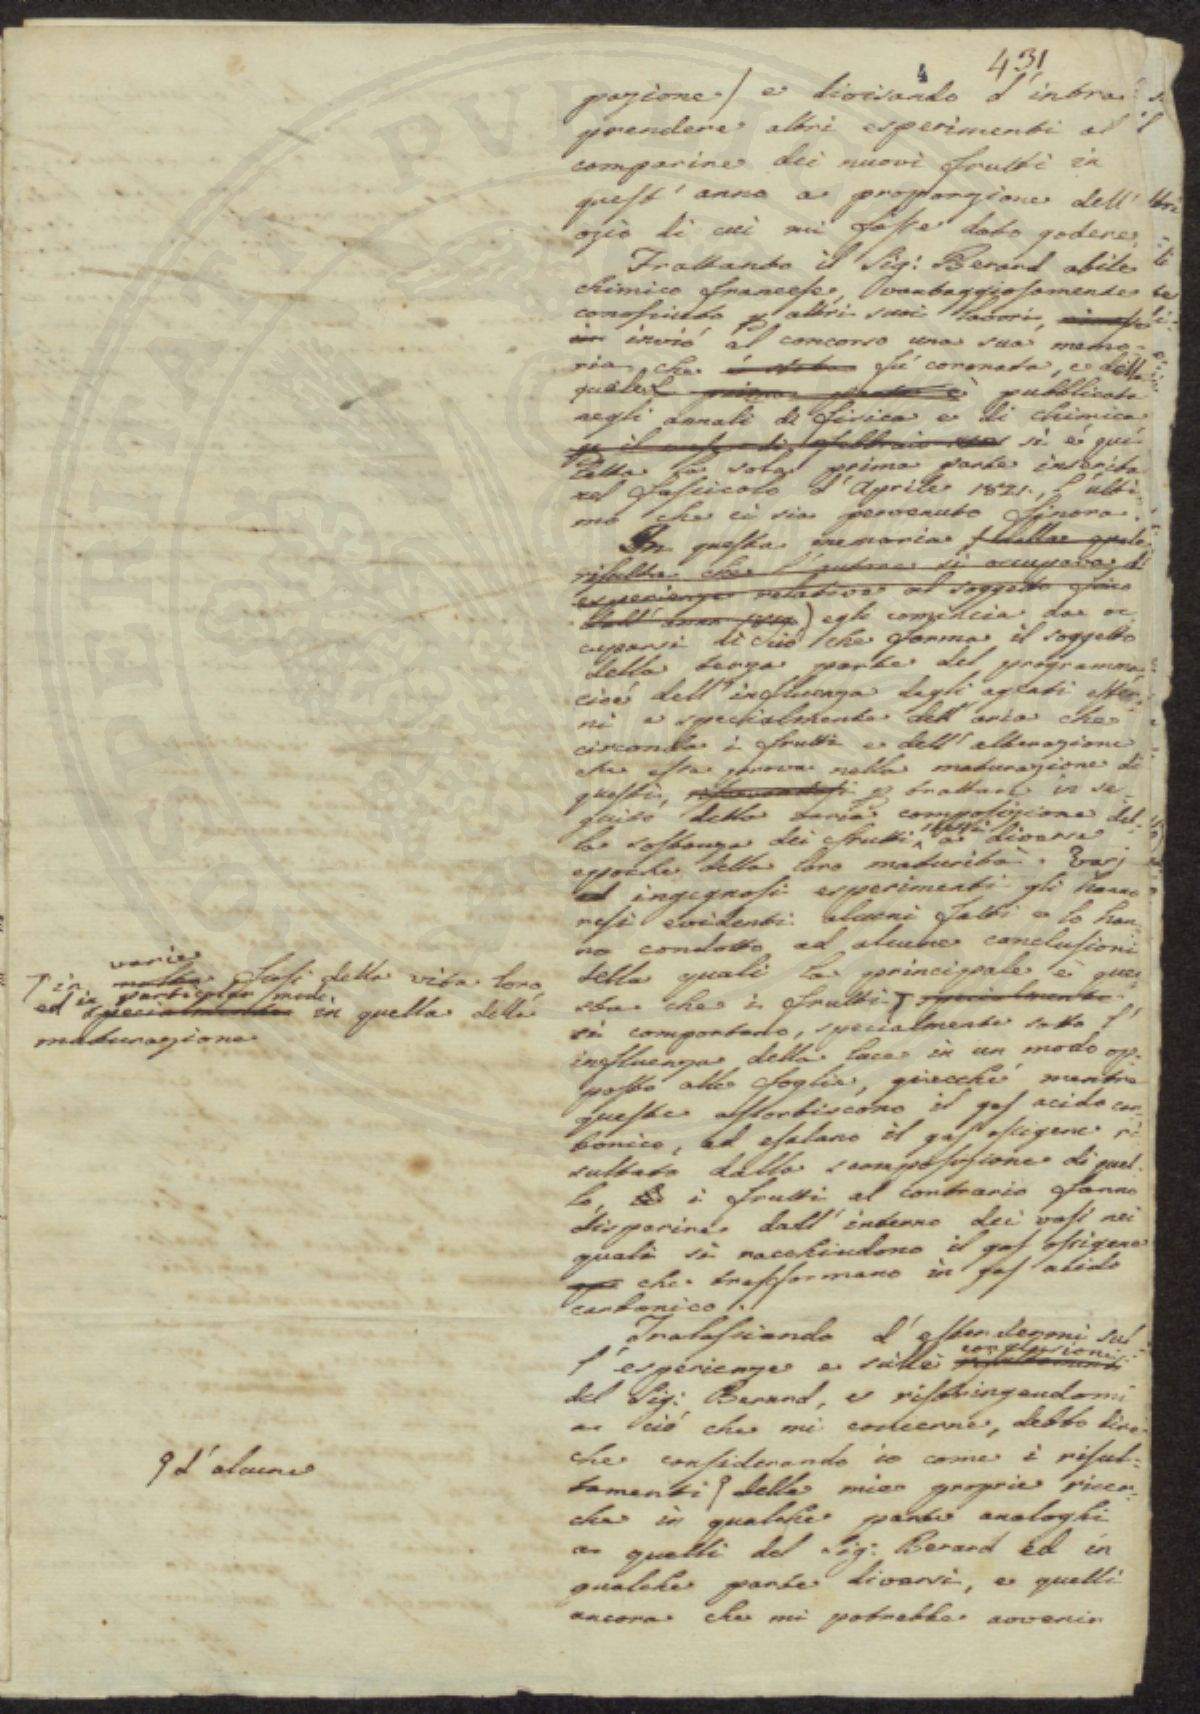 431
pazione) e divisando d'intra-
prendere altri esperimenti al
comparire dei nuovi frutti in
quest'anno a proporzione dell'
ozio di cui mi fosse dato godere.
Frattanto il Sig: Berard abile
chimico francese, vantaggiosamente
conosciuto p altri suoi lavori,
inviò al concorso una sua memo-
ria che è stata fu coronata, e della
quale prima parte è pubblicata
negli annali di fisica e di chimica
p il mese di febbraio si è qui
letta la sola prima parte inserita
nel fascicolo d'Aprile 1821, l'ulti-
mo che ci sia pervenuto finora.
In questa memoria (dalla quale
risulta che l'autore si occupava di
esperienze relative al soggetto fino
dall'anno) egli comincia da oc
cuparsi di ciò che forma il soggetto
della terza parte del programma
cioè dell'influenza degli agenti ester-
ni e specialmente dell'aria che
circonda i frutti e dell'alterazione
che essa prova nella maturazione di
questi, p trattare in se-
guito della varia composizione del-
la sostanza dei frutti a diverse
epoche della loro maturità. Varj
ed ingegnosi esperimenti gli hanno
resi evidenti alcuni fatti e lo han-
no condotto ad alcune conclusioni
della quali la principale è que-
sta che i frutti specialmente
si comportano, specialmente sotto l'
influenza della luce in un modo op-
posto alle foglie, giacchè mentre
queste assorbiscono il gas acido car-
bonico, ed esalano il gas ossigene ri-
sultato dalla scomposizione di quel-
lo, i frutti al contrario fanno
disparire dall'interno dei vasi nei
quali si racchiudono il gas ossigene
che trasformano in gas acido
carbonico.
Tralasciando d'estendermi sul
l'esperienze e sulle conclusioni
del Sig: Berard, e ristringendomi
a ciò che mi concerne, debbo dire
che considerando io come i risul-
tamenti delle mie proprie ricer-
che in qualche parte analoghi
a quelli del Sig: Berard ed in
qualche parte diversi, e quelli
ancora che mi potrebbe avvenir
varie
in molte fasi della vita loro
ed in particolar modo
specialmente in quella della
maturazione
d'alcune